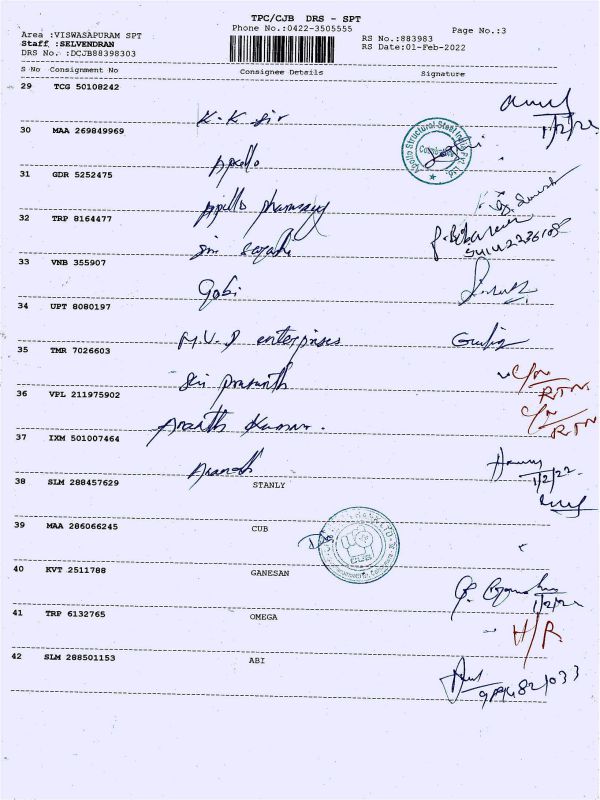 TPC/CJB DRS - SPT
Phone No.:0422-3505555
Page No.:3
Area :VISWASAPURAM SPT
Staff :SELVENDRAN
DRS No. :DCJB88398303
RS No.:883983
RS Date:01-Feb-2022
S No Consignment No Consignee Details Signature
29 TCG 50108242
K.K Sir
1/2/22
30 MAA 269849969
Apollo
Apollo Structural Steel India Pvt. Ltd.
31 GDR 5252475
Apollo pharmacy
32 TRP 8164477
33 VNB 355907
Gobi
34 UPT 8080197
M.V.P enterprises
35 TMR 7026603
Sri prasanth
C/N
RTN
36 VPL 211975902
Ananth Kumar.
C/N
RTN
37 IXM 501007464
Anandh
1/2/22
38 SLM 288457629 STANLY
39 MAA 286066245 CUB
CUB
40 KVT 2511788 GANESAN
1/2/22
41 TRP 6132765 OMEGA
H/R
42 SLM 288501153 ABI